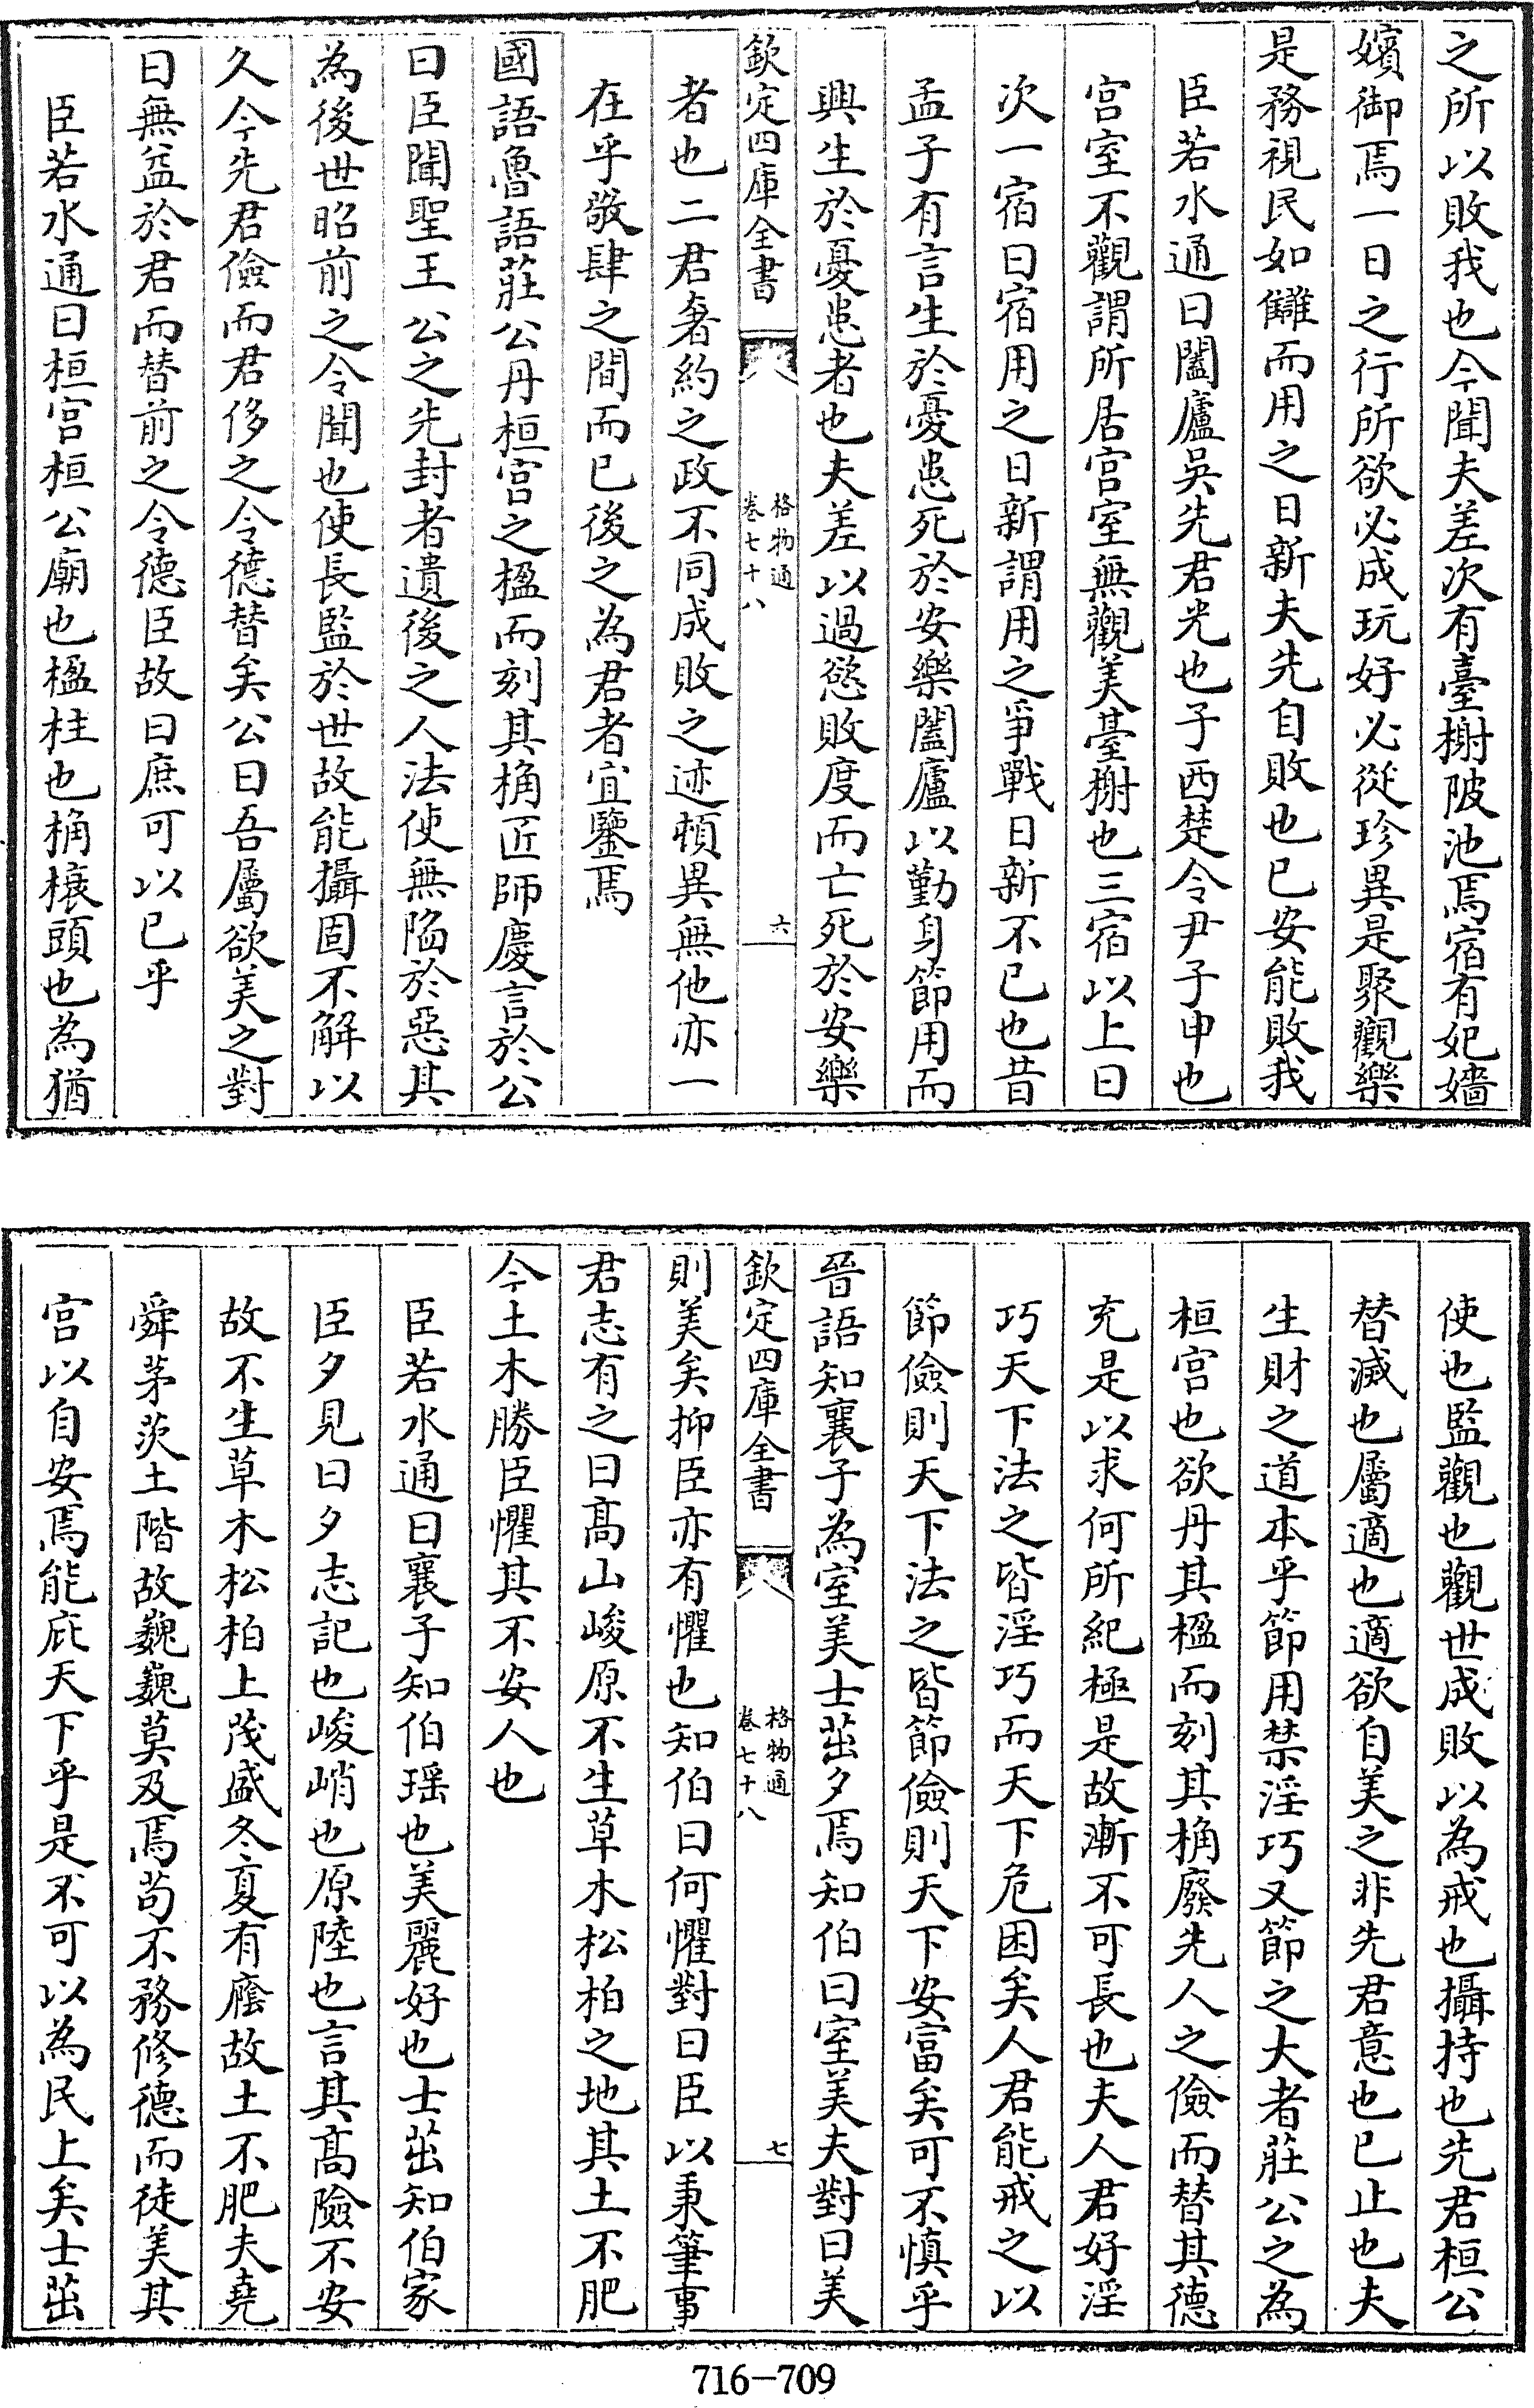 之所以敗我也今聞夫差次有臺榭陂池焉宿有妃嬙
嬪御焉一日之行所欲必成玩好必從珍異是聚觀樂
是務視民如讎而用之日新夫先自敗也已安能敗我
臣若水通曰闔廬吳先君光也子西楚令尹子申也
宫室不觀謂所居宫室無觀美臺榭也三宿以上曰
次一宿曰宿用之日新謂用之爭戰日新不已也昔
孟子有言生於憂患死於安樂闔廬以勤身節用而
興生於憂患者也夫差以過慾敗度而亡死於安樂
欽定四庫全書
格物通
卷七十八
六
者也二君奢約之政不同成敗之迹頓異無他亦一
在乎敬肆之間而已後之為君者宜鑒焉
國語魯語莊公丹桓宫之楹而刻其桷匠師慶言於公
曰臣聞聖王公之先封者遺後之人法使無陷於惡其
為後世昭前之令聞也使長監於世故能攝固不解以
久今先君儉而君侈之令德替矣公曰吾屬欲美之對
曰無益於君而替前之令德臣故曰庶可以已乎
臣若水通曰桓宫桓公廟也楹柱也桷榱頭也為猶
使也監觀也觀世成敗以為戒也攝持也先君桓公
替滅也屬適也適欲自美之非先君意也已止也夫
生財之道本乎節用禁淫巧又節之大者莊公之為
桓宫也欲丹其楹而刻其桷廢先人之儉而替其德
充是以求何所紀極是故漸不可長也夫人君好淫
巧天下法之皆淫巧而天下危困矣人君能戒之以
節儉則天下法之皆節儉則天下安富矣可不慎乎
晉語知襄子為室美士茁夕焉知伯曰室美夫對曰美
欽定四庫全書
格物通
卷七十八
七
則美矣抑臣亦有懼也知伯曰何懼對曰臣以秉筆事
君志有之曰髙山峻原不生草木松柏之地其土不肥
今土木勝臣懼其不安人也
臣若水通曰襄子知伯瑶也美麗好也士茁知伯家
臣夕見曰夕志記也峻峭也原陸也言其髙險不安
故不生草木松柏上茂盛冬夏有廕故土不肥夫堯
舜茅茨土階故巍巍莫及焉苟不務修德而徒美其
宫以自安焉能庇天下乎是不可以為民上矣士茁
716-709